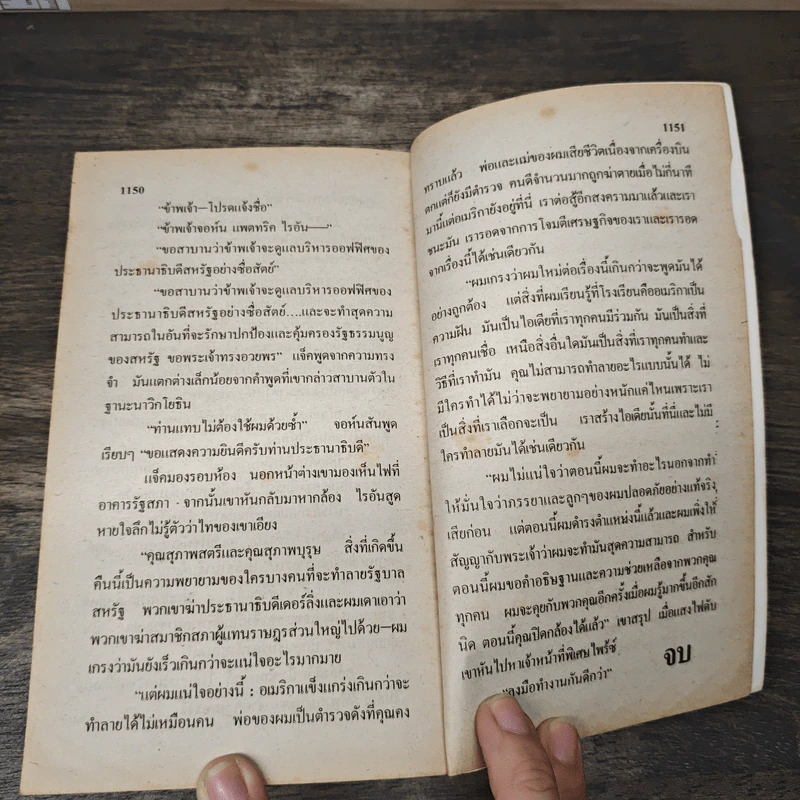 1150
“ข้าพเจ้า—โปรดแจ้งชื่อ”
“ข้าพเจ้าจอห์น แพตทริค ไรอัน——”
“ขอสาบานว่าข้าพเจ้าจะดูแลบริหารออฟฟิศของ
ประธานาธิบดีสหรัฐอย่างซื่อสัตย์”
“ขอสาบานว่าข้าพเจ้าจะดูแลบริหารออฟฟิศของ
ประธานาธิบดีสหรัฐอย่างซื่อสัตย์....และจะทำสุดความ
สามารถในอันที่จะรักษาปกป้องและคุ้มครองรัฐธรรมนูญ
ของสหรัฐ ขอพระเจ้าทรงอวยพร” แจ็คพูดจากความทรง
จำ มันแตกต่างเล็กน้อยจากคำพูดที่เขากล่าวสาบานตัวใน
ฐานะนาวิกโยธิน
“ท่านแทบไม่ต้องใช้ผมด้วยซ้ำ” จอห์นสันพูด
เรียบๆ “ขอแสดงความยินดีครับท่านประธานาธิบดี”
แจ็คมองรอบห้อง นอกหน้าต่างเขามองเห็นไฟที่
อาคารรัฐสภา จากนั้นเขาหันกลับมาหากล้อง ไรอันสูด
หายใจลึกไม่รู้ตัวว่าไทของเขาเอียง
“คุณสุภาพสตรีและคุณสุภาพบุรุษ สิ่งที่เกิดขึ้น
คืนนี้เป็นความพยายามของใครบางคนที่จะทำลายรัฐบาล
สหรัฐ พวกเขาฆ่าประธานาธิบดีเดอร์ลิ่งและผมเดาเอาว่า
พวกเขาฆ่าสมาชิกสภาผู้แทนราษฎรส่วนใหญ่ไปด้วย—ผม
เกรงว่ามันยังเร็วเกินกว่าจะแน่ใจอะไรมากมาย
“แต่ผมแน่ใจอย่างนี้ : อเมริกาแข็งแกร่งเกินกว่าจะ
ทำลายได้ไม่เหมือนคน พ่อของผมเป็นตำรวจดังที่คุณคง
1151
ทราบแล้ว พ่อและแม่ของผมเสียชีวิตเนื่องจากเครื่องบิน
ตกแต่ก็ยังมีตำรวจ คนดีจำนวนมากถูกฆ่าตายเมื่อไม่กี่นาที
มานี้แต่อเมริกายังอยู่ที่นี่ เราต่อสู้อีกสงครามมาแล้วและเรา
ชนะมัน เรารอดจากการโจมตีเศรษฐกิจของเราและเรารอด
จากเรื่องนี้ได้เช่นเดียวกัน
“ผมเกรงว่าผมใหม่ต่อเรื่องนี้เกินกว่าจะพูดมันได้
อย่างถูกต้อง แต่สิ่งที่ผมเรียนรู้ที่โรงเรียนคืออเมริกาเป็น
ความฝัน มันเป็นไอเดียที่เราทุกคนมีร่วมกัน มันเป็นสิ่งที่
เราทุกคนเชื่อ เหนือสิ่งอื่นใดมันเป็นสิ่งที่เราทุกคนทำและ
วิธีที่เราทำมัน คุณไม่สามารถทำลายอะไรแบบนั้นได้ ไม่
มีใครทำได้ไม่ว่าจะพยายามอย่างหนักแค่ไหนเพราะเรา
เป็นสิ่งที่เราเลือกจะเป็น เราสร้างไอเดียนั้นที่นี่และไม่มี
ใครทำลายมันได้เช่นเดียวกัน
“ผมไม่แน่ใจว่าตอนนี้ผมจะทำอะไรนอกจากทำ
ให้มั่นใจว่าภรรยาและลูกๆของผมปลอดภัยอย่างแท้จริง
เสียก่อน แต่ตอนนี้ผมดำรงตำแหน่งนี้แล้วและผมเพิ่งให้
สัญญากับพระเจ้าว่าผมจะทำมันสุดความสามารถ สำหรับ
ตอนนี้ผมขอคำอธิษฐานและความช่วยเหลือจากพวกคุณ
ทุกคน ผมจะคุยกับพวกคุณอีกครั้งเมื่อผมรู้มากขึ้นอีกสัก
นิด ตอนนี้คุณปิดกล้องได้แล้ว” เขาสรุป เมื่อแสงไฟดับ
เขาหันไปหาเจ้าหน้าที่พิเศษไพร้ซ์
“ลงมือทำงานกันดีกว่า”
จบ